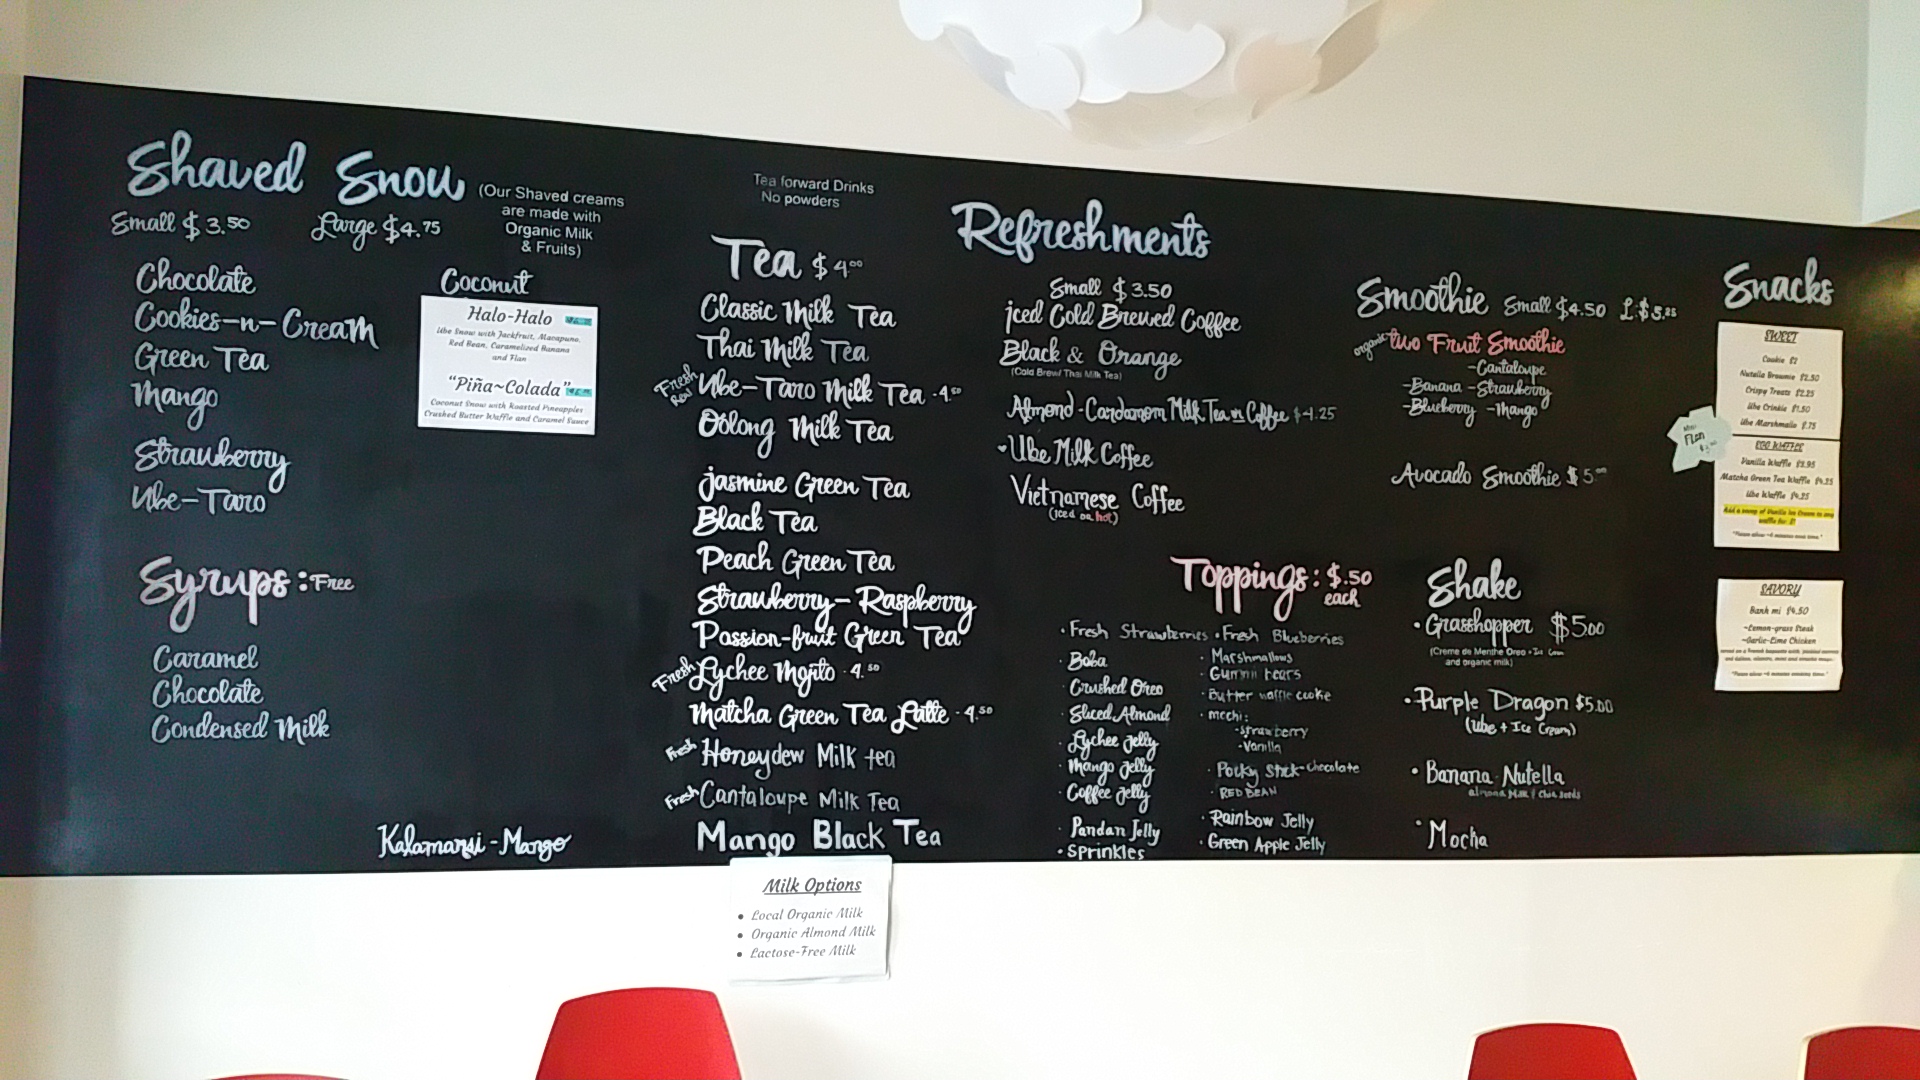 Shaved Snow
(Our Shaved creams
are made with
Organic Milk
& Fruits)
Small $3.50 Large $4.75
Chocolate
Cookies-n-Cream
Green Tea
Mango
Strawberry
Ube-Taro
Coconut
Halo-Halo
Ube Snow with Jackfruit, Macapuno,
Red Bean, Caramelized Banana
and Flan
"Piña~Colada"
Coconut Snow with Roasted Pineapples
Crushed Butter Waffle and Caramel Sauce
Syrups: Free
Caramel
Chocolate
Condensed Milk
Kalamansi-Mango
Tea forward Drinks
No powders
Tea $4.00
Classic Milk Tea
Thai Milk Tea
Fresh Ube-Taro Milk Tea - 4.50
Oolong Milk Tea
Jasmine Green Tea
Black Tea
Peach Green Tea
Strawberry-Raspberry
Passion-fruit Green Tea
Fresh Lychee Mojito - 4.50
Matcha Green Tea Latte - 4.50
Fresh Honeydew Milk tea
Fresh Cantaloupe Milk Tea
Mango Black Tea
Milk Options
• Local Organic Milk
• Organic Almond Milk
• Lactose-Free Milk
Refreshments
Small $3.50
iced Cold Brewed Coffee
Black & Orange
(Cold Brew/ Thai Milk Tea)
Almond-Cardamom Milk Tea or Coffee $4.25
Ube Milk Coffee
Vietnamese Coffee
(iced or hot)
Smoothie Small $4.50 L:$5.25
organic two Fruit Smoothie
-Cantaloupe
-Banana -Strawberry
-Blueberry -Mango
Avocado Smoothie $5.00
Toppings: $.50
each
• Fresh Strawberries
• Boba
• Crushed Oreo
• Sliced Almond
• Lychee Jelly
• Mango Jelly
• Coffee Jelly
• Pandan Jelly
• Sprinkles
• Fresh Blueberries
• Marshmallows
• Gummi Bears
• Butter waffle cookie
• mochi:
-Strawberry
-Vanilla
• Pocky Stick-chocolate
• RED BEAN
• Rainbow Jelly
• Green Apple Jelly
Shake
• Grasshopper $5.00
(Creme de Menthe Oreo + Ice Cream
and organic milk)
• Purple Dragon $5.00
(Ube + Ice Cream)
• Banana Nutella
almond Milk / Chia Seeds
• Mocha
Snacks
SWEET
Cookie $2
Nutella Brownie $2.50
Crispy Treats $2.25
Ube Crinkle $1.50
Ube Marshmallo $.75
Mini
Flan
EGG WAFFLE
Vanilla Waffle $3.95
Matcha Green Tea Waffle $4.25
Ube Waffle $4.25
Add a scoop of Vanilla Ice Cream to any
waffle for $1
SAVORY
Banh mi $4.50
~Lemon-grass Steak
~Garlic-Lime Chicken